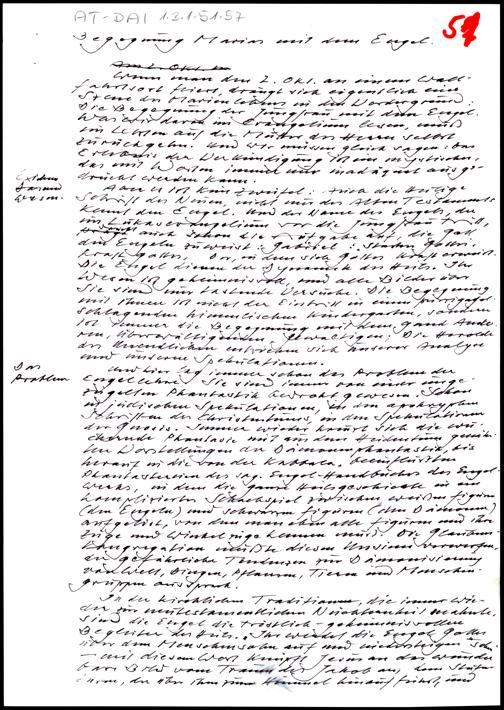 AT-DAI 1.3.1-51-57
Begegnung Marias mit dem Engel.
Wenn man den 2. Okt. an einem Wall-
fahrtsort feiert, drängt sich eigentlich eine
Szene des Marienlebens in den Vordergrund:
Die Begegnung der Jungfrau mit dem Engel.
Was wir darin im Evangelium lesen, muß
im Letzten auf die Mutter des Herrn selbst
zurückgehen. Und wir müssen gleich sagen: Das
Erlebnis der Verkündigung ist ein mystisches,
das mit Worten immer nur
drückt werden kann.
Aber es ist kein Zweifel: Auch die Heilige
Schrift des Neuen, nicht nur des Alten Testaments
kennt den Engel. Und der Name des Engels, der
im Lukasevangelium vor die Jungfrau tritt,
die Aufgabe auf, die Gott
den Engeln zuweist: Gabriel:
Kraft Gottes, Der, in dem sich Gottes Kraft erweist.
Die Engel dienen der Dynamik des Heils. Ihr
Wesen ist geheimnisvoll, und alle Bilder von
Sie sind nur tastende Versuche. Die Begegnung
mit ihnen ist nicht der Eintritt in einen
schlagenden himmlischen Kindergarten, sondern
ist immer die Begegnung mit dem ganz Ande-
ren, Überwältigenden, Gewaltigen; Die
des Unendlichen entziehen sich unserer Analyse
und unseren Spekulationen.
Das
Problem
Und hier lag immer schon das Problem der
Engellehre. Sie sind immer von einer unge-
zügelten Phantastik bedroht gewesen. Schon
in jüdischen Spekulationen, in den apokryphen
Schriften des Christentums, in den Spekulationen
der Gnosis. Immer wieder
chernde Phantasie mit aus dem Heidentum
ten Vorstellungen der Dämonenphantastik, bis
herauf in die von der Kabbala beeinflußten
Phantastereien des sog. Engel-Handbuches des Engel-
werks, in dem die ganze Heilsgeschichte in ein
kompliziertes Schachspiel zwischen weißen Figuren
(den Engeln) und schwarzen Figuren (den Dämonen)
aufgelöst, von dem man eben alle Figuren und ihre
Züge und Winkelzüge kennen muß. Die Glaubens-
kongregation mußte diesen Unsinn verwerfen,
der gefährliche Tendenzen zur Dämonisierung
von Welt, Dingen, Pflanzen, Tieren und Menschen-
gruppen aussprach.
In der kirchlichen Tradition, die immer wie-
der zur neutestamentlichen Nüchternheit mahnte,
sind die Engel die tröstlich-geheimnisvollen
Begleiter des Heils. "Ihr werdet die Engel Gottes
über dem Menschensohn auf und niedersteigen sehen"
- mit diesem Wort knüpft Jesus an das wunder-
bare Bild vom Traum des Jakob an, dem
die über ihm zum Himmel hinauf führt, und